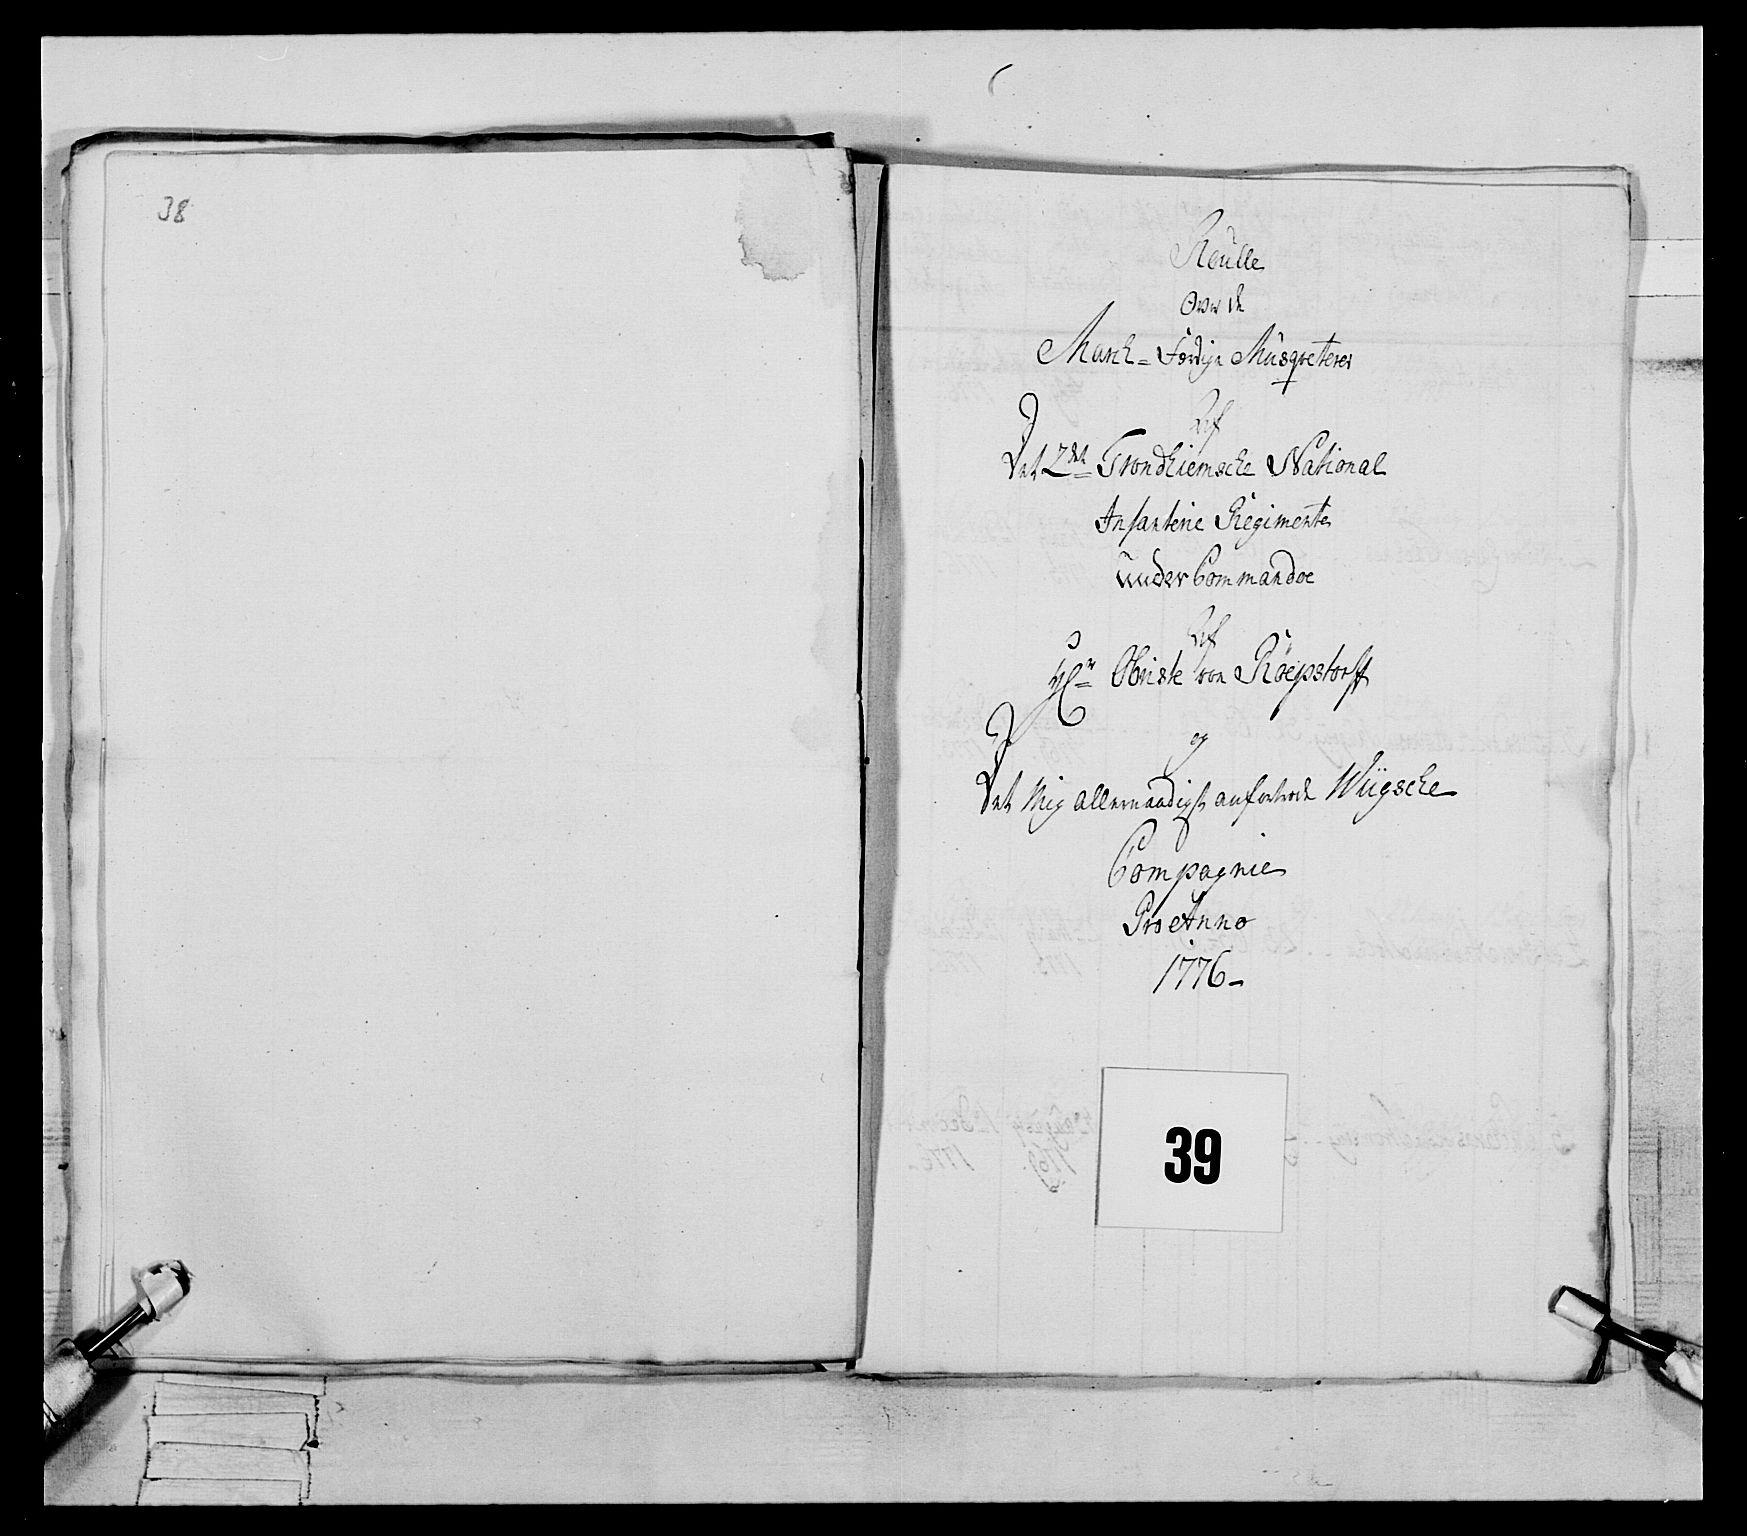 38
Roulle
Over de
March-Færdige Musqveterer
Af
Det 2det Trondhiemsche National
Infanterie Regimente
under Commandoe
Af
Hr Obriste von Röepstorff
og
Det Mig allernaadigst anfortroede Wiigsche
Compagnie
Pro Anno
1776
39